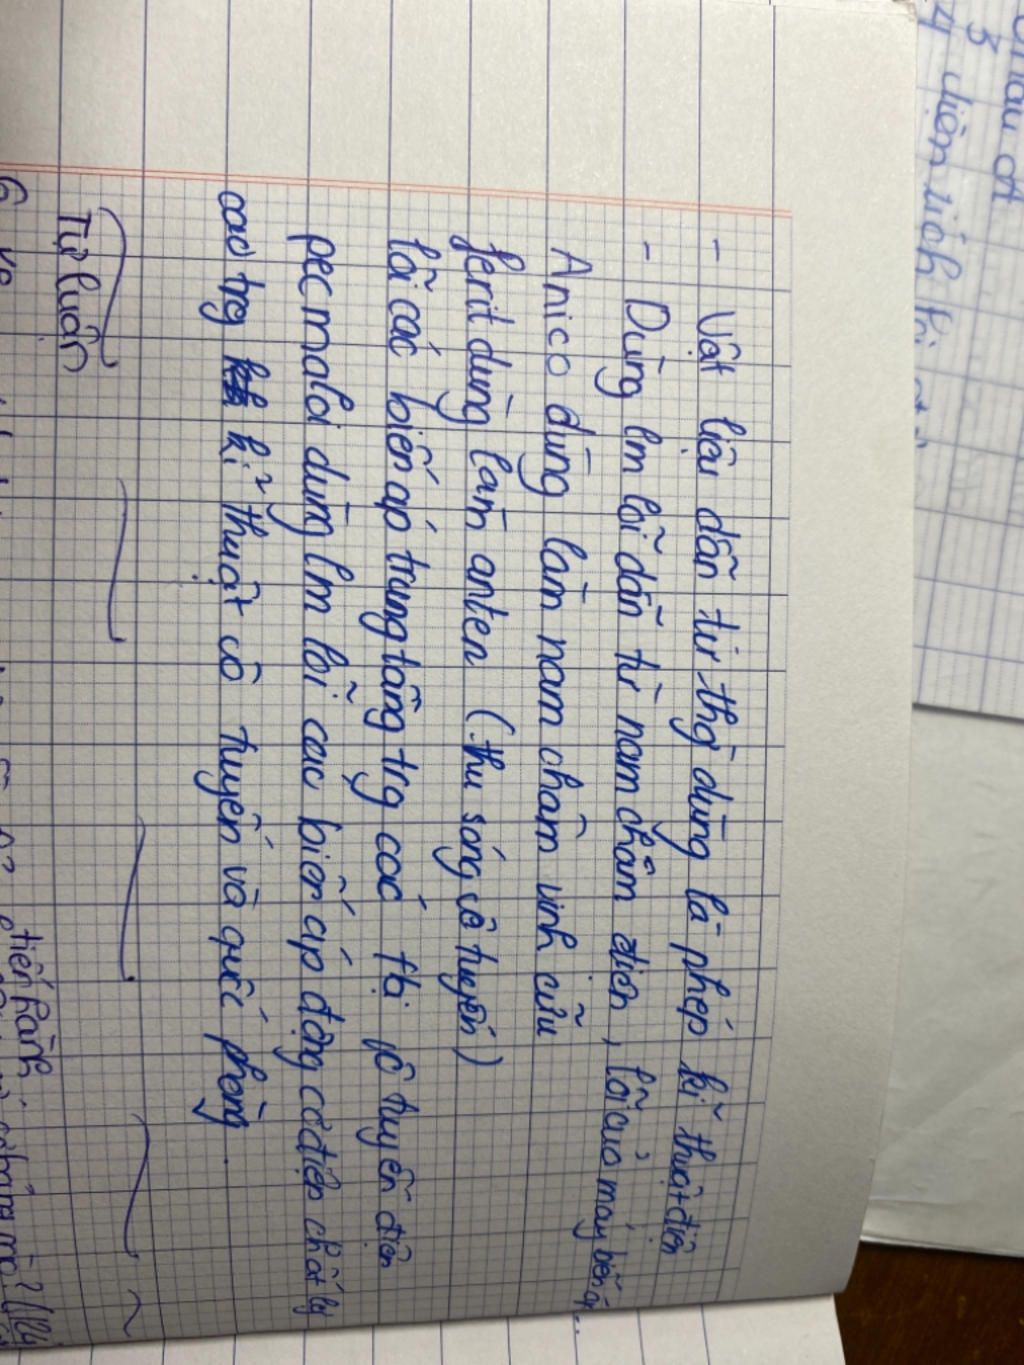 - Vật liệu dẫn từ thg dùng là phép kĩ thuật điện
- Dùng lm lõi dẫn từ nam châm điện, lõi của máy biến áp...
Anico dùng làm nam châm vĩnh cửu
ferit dùng làm anten (thu sóng vô tuyến)
lõi các biến áp trung tầng trg các tbị vô tuyến điện
pecmaloi dùng lm lõi các biến áp động cơ điện chất lg
cao trg kĩ thuật vô tuyến và quốc phòng.
Tự luận
tiến hành